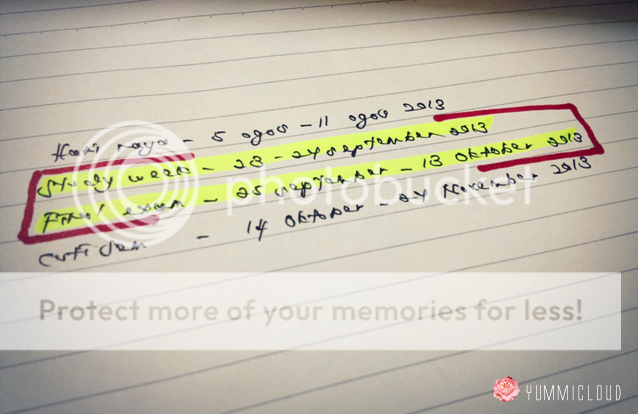 Hari raya - 5 ogos - 11 ogos 2013
Study week - 23 - 24 september 2013
Final exam - 25 september - 13 Oktober 2013
Cuti sem - 14 Oktober - 24 November 2013
photobucket
Protect more of your memories for less!
YUMMICLOUD